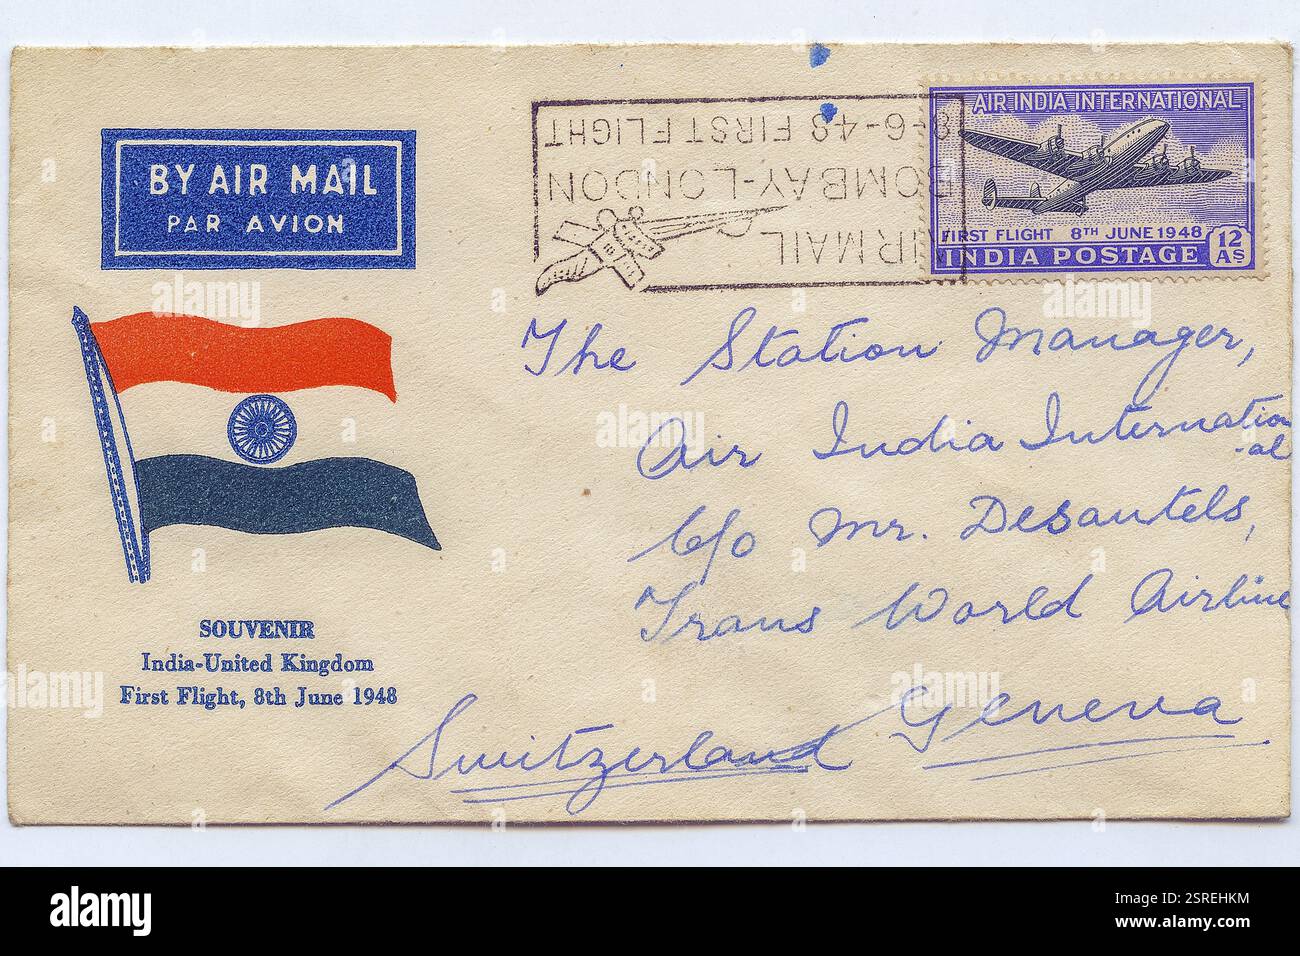 BY AIR MAIL
PAR AVION
8-6-48 FIRST FLIGHT
BOMBAY-LONDON
AIR MAIL
AIR INDIA INTERNATIONAL
FIRST FLIGHT 8TH JUNE 1948
INDIA POSTAGE
12 As
The Station Manager,
Air India Internation
-al
c/o Mr. Desautels,
Trans World Airline
Geneva
Switzerland
SOUVENIR
India-United Kingdom
First Flight, 8th June 1948
alamy
alamy
Image ID: 2SREHKM
www.alamy.com